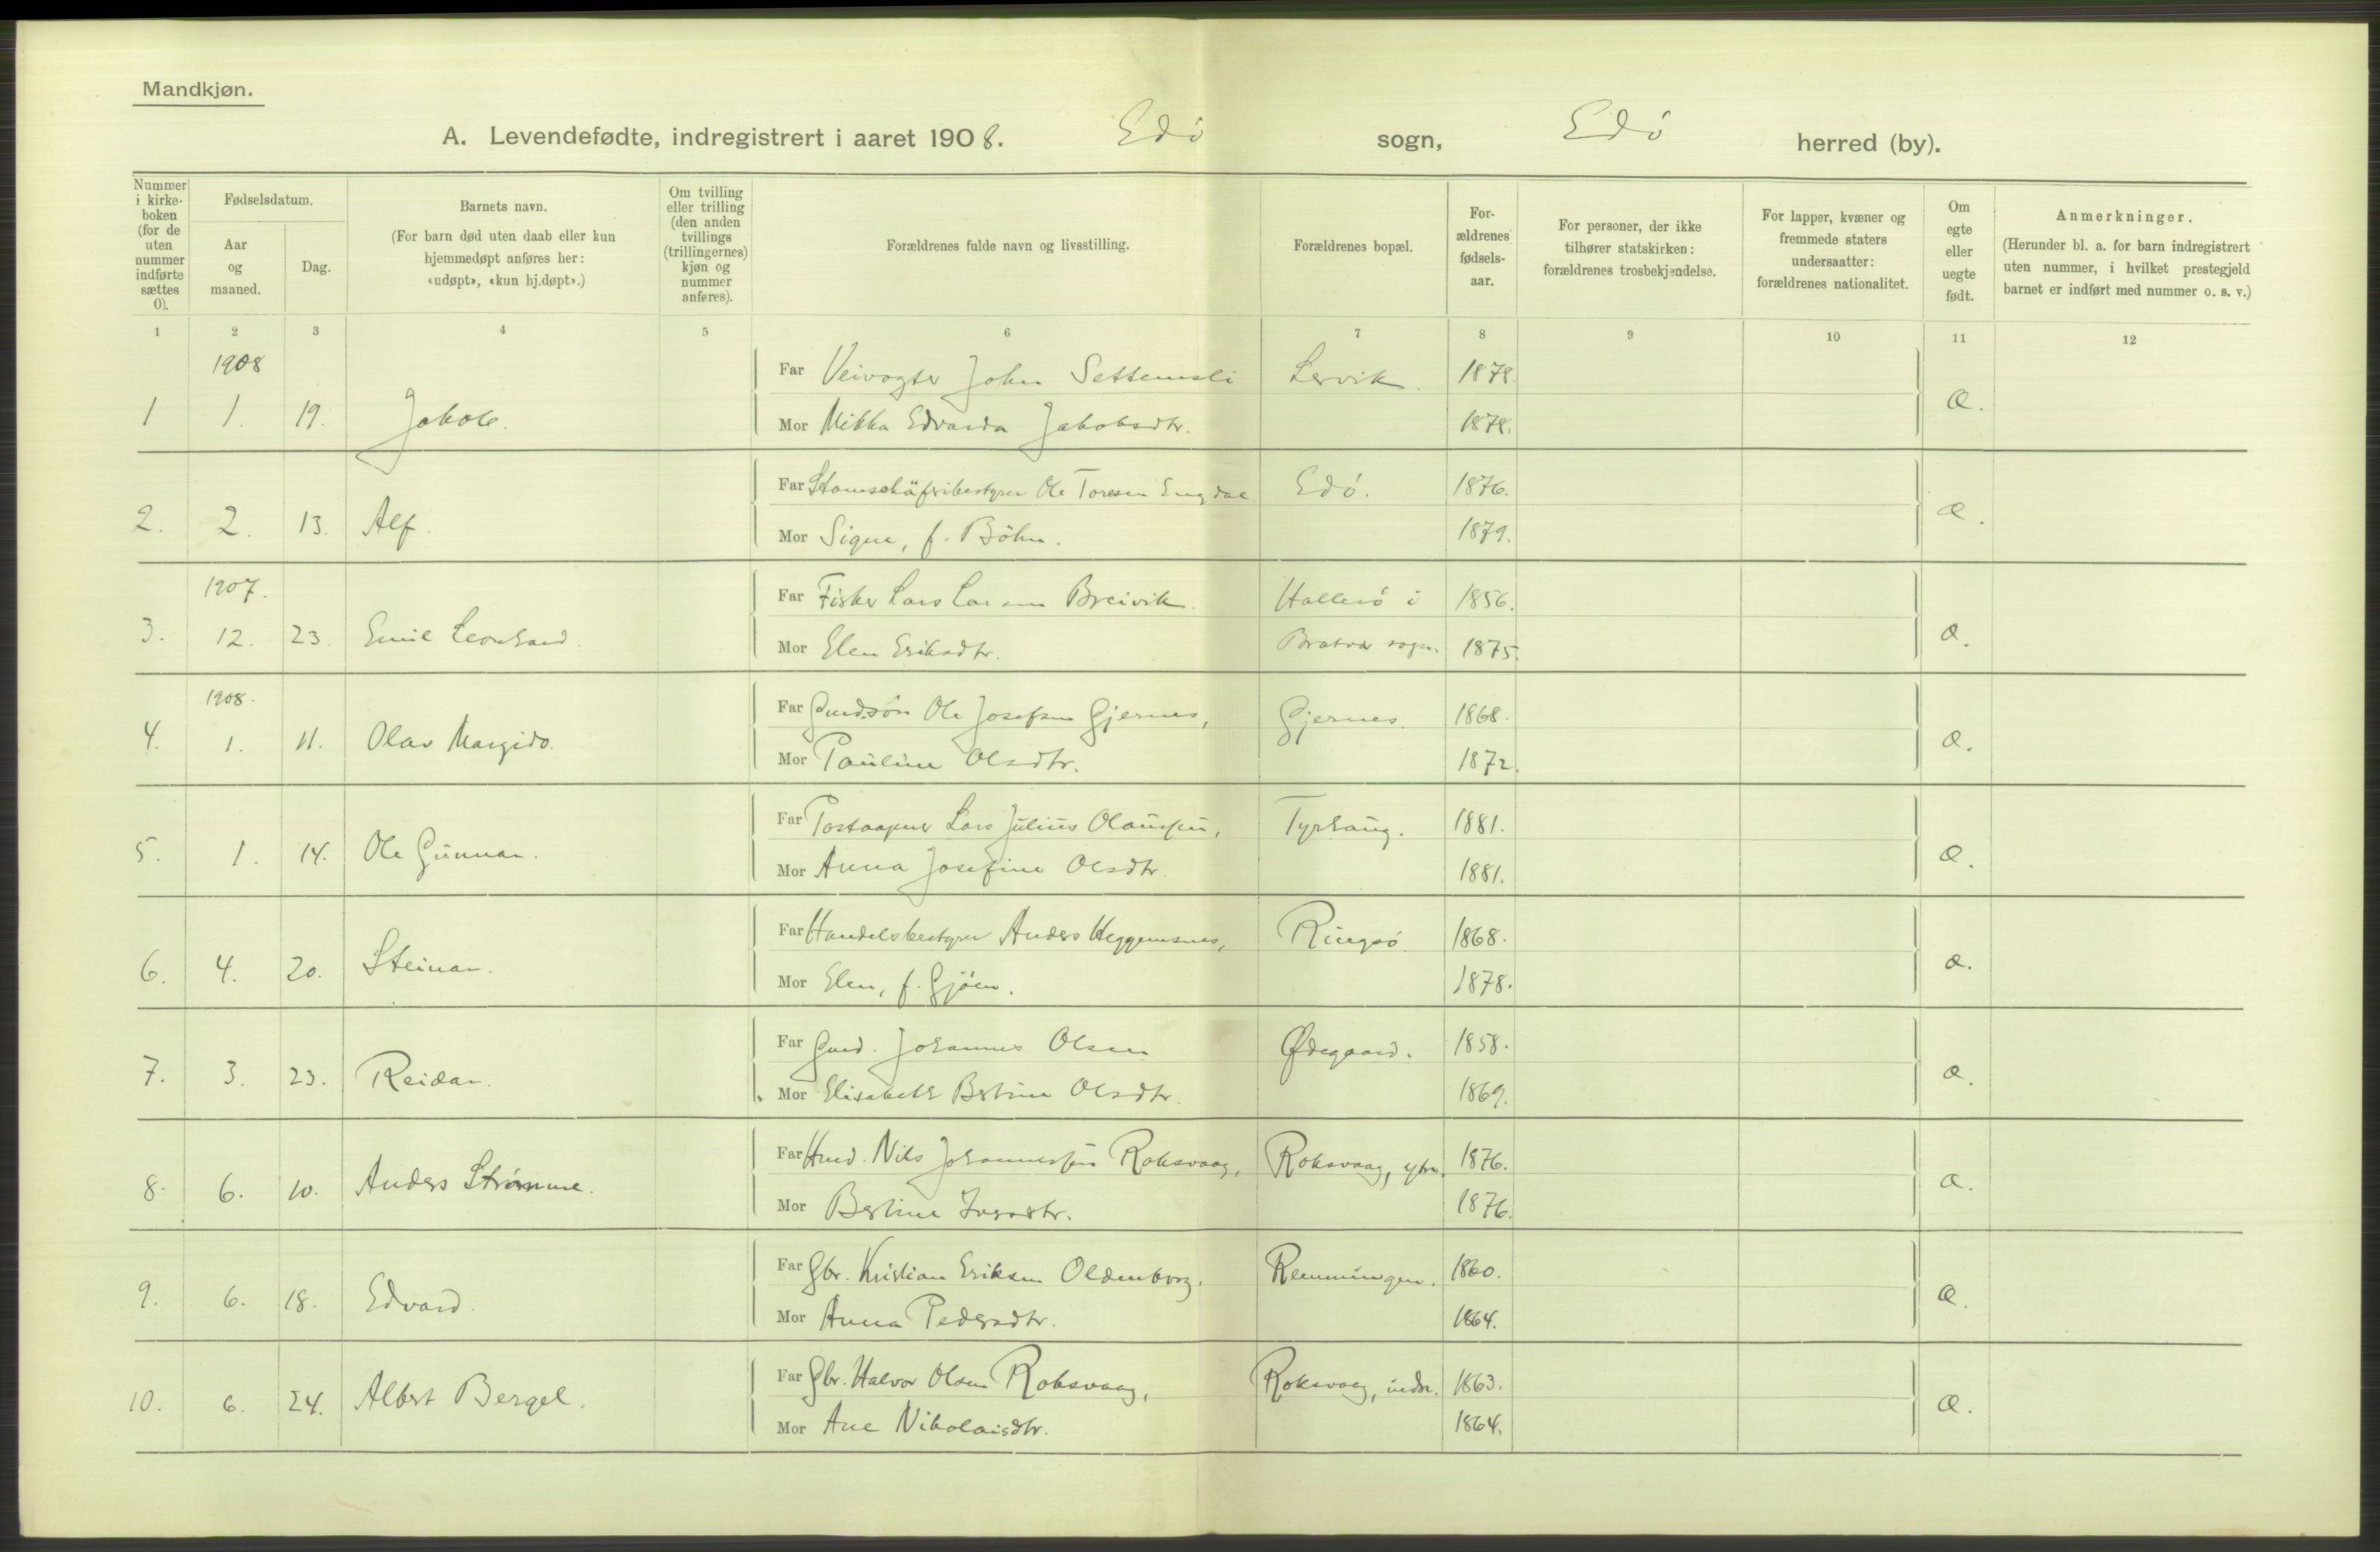 Mandkjøn.
A. Levendefødte, indregistrert i aaret 1908. Edö sogn, Edö herred (by).
Nummer i kirke-boken (for de uten nummer indførte sættes 0).
Fødselsdatum.
Aar og maaned.
Dag.
Barnets navn.
(For barn død uten daab eller kun hjemmedøpt anføres her: «udøpt», «kun hj.døpt».)
Om tvilling eller trilling (den anden tvillings (trillingernes) kjøn og nummer anføres).
Forældrenes fulde navn og livsstilling.
Forældrenes bopæl.
For-ældrenes fødsels-aar.
For personer, der ikke tilhører statskirken: forældrenes trosbekjendelse.
For lapper, kvæner og fremmede staters undersaatter: forældrenes nationalitet.
Om egte eller uegte født.
Anmerkninger.
(Herunder bl. a. for barn indregistrert uten nummer, i hvilket prestegjeld barnet er indført med nummer o. s. v.)
1 2 3 4 5 6 7 8 9 10 11 12
1908
Far Veivogter John Settemsli Lervik. 1878.
1 1. 19. Jakob. æ.
Mor Mikka Edvarda Jakobsdtr. 1878.
Far Ole Toresen Engdal Edö. 1876.
2. 2. 13. Alf. æ.
Mor Signe, f. Böhn. 1879.
1907.
Far Fisker Lars Larsen Breivik. Hallerö i 1856.
3. 12. 23. Emil Leonhard. æ.
Mor Elen Eriksdtr. Bratvær sogn. 1875.
1908.
Far Ole Josefsen Gjernes, Gjernes. 1868.
4. 1. 11. Olav Margido. æ.
Mor Pauline Olsdtr. 1872.
Far Postaapner Lars Julius Olaussen, Tyrhaug. 1881.
5. 1. 14. Ole Gunnar. æ.
Mor Anna Josefine Olsdtr. 1881.
Far Handelsbestyrer Anders Heggemsnes, Ringsö. 1868.
6. 4. 20. Steinar. æ.
Mor Elen, f. Gjöen. 1878.
Far Johannes Olsen Ødegaard. 1858.
7. 3. 23. Reidar. æ.
Mor Elisabeth Bertine Olsdtr. 1869.
Far Nils Johannessen Roksvaag, Roksvaag, ytre. 1876.
8. 6. 10. Anders Strømme. æ.
Mor Bertine Iversdtr. 1876.
Far Gbr. Kristian Eriksen Oldenborg. Remmingen. 1860.
9. 6. 18. Edvard. æ.
Mor Anna Pedersdtr. 1864.
Far Gbr. Halvor Olsen Roksvaag, Roksvaag, indre. 1863.
10. 6. 24. Albert Bergel. æ.
Mor Ane Nikolaisdtr. 1864.